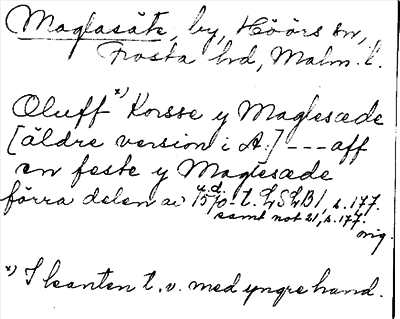 Maglasäte, by, Höörs sn,
Frosta hd, Malm. l.
Oluff x) Korsse y Maglesæde
[äldre version i A:] --- aff
en feste y Maglesæde
förra delen av 15/0-t. LSLB1, s. 177.
u.d.
samt not 21, s. 177.
orig.
x) I kanten t. v. med yngre hand.